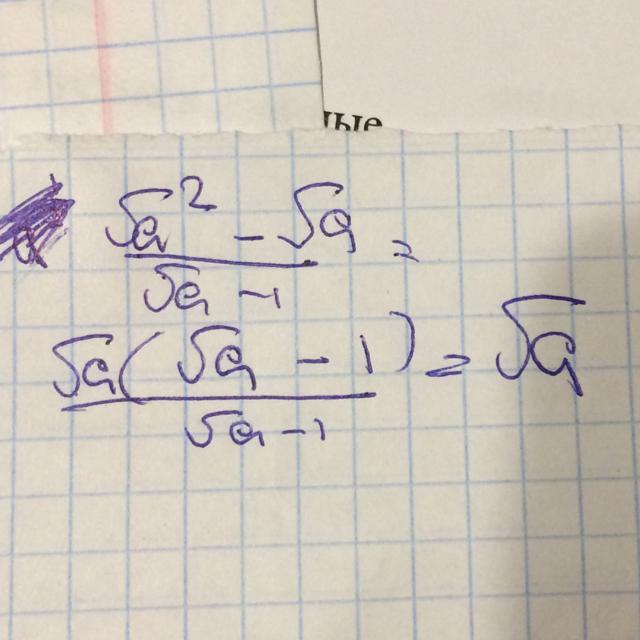 ные
√a² - √a =
√a - 1
√a( √a - 1) = √a
√a - 1